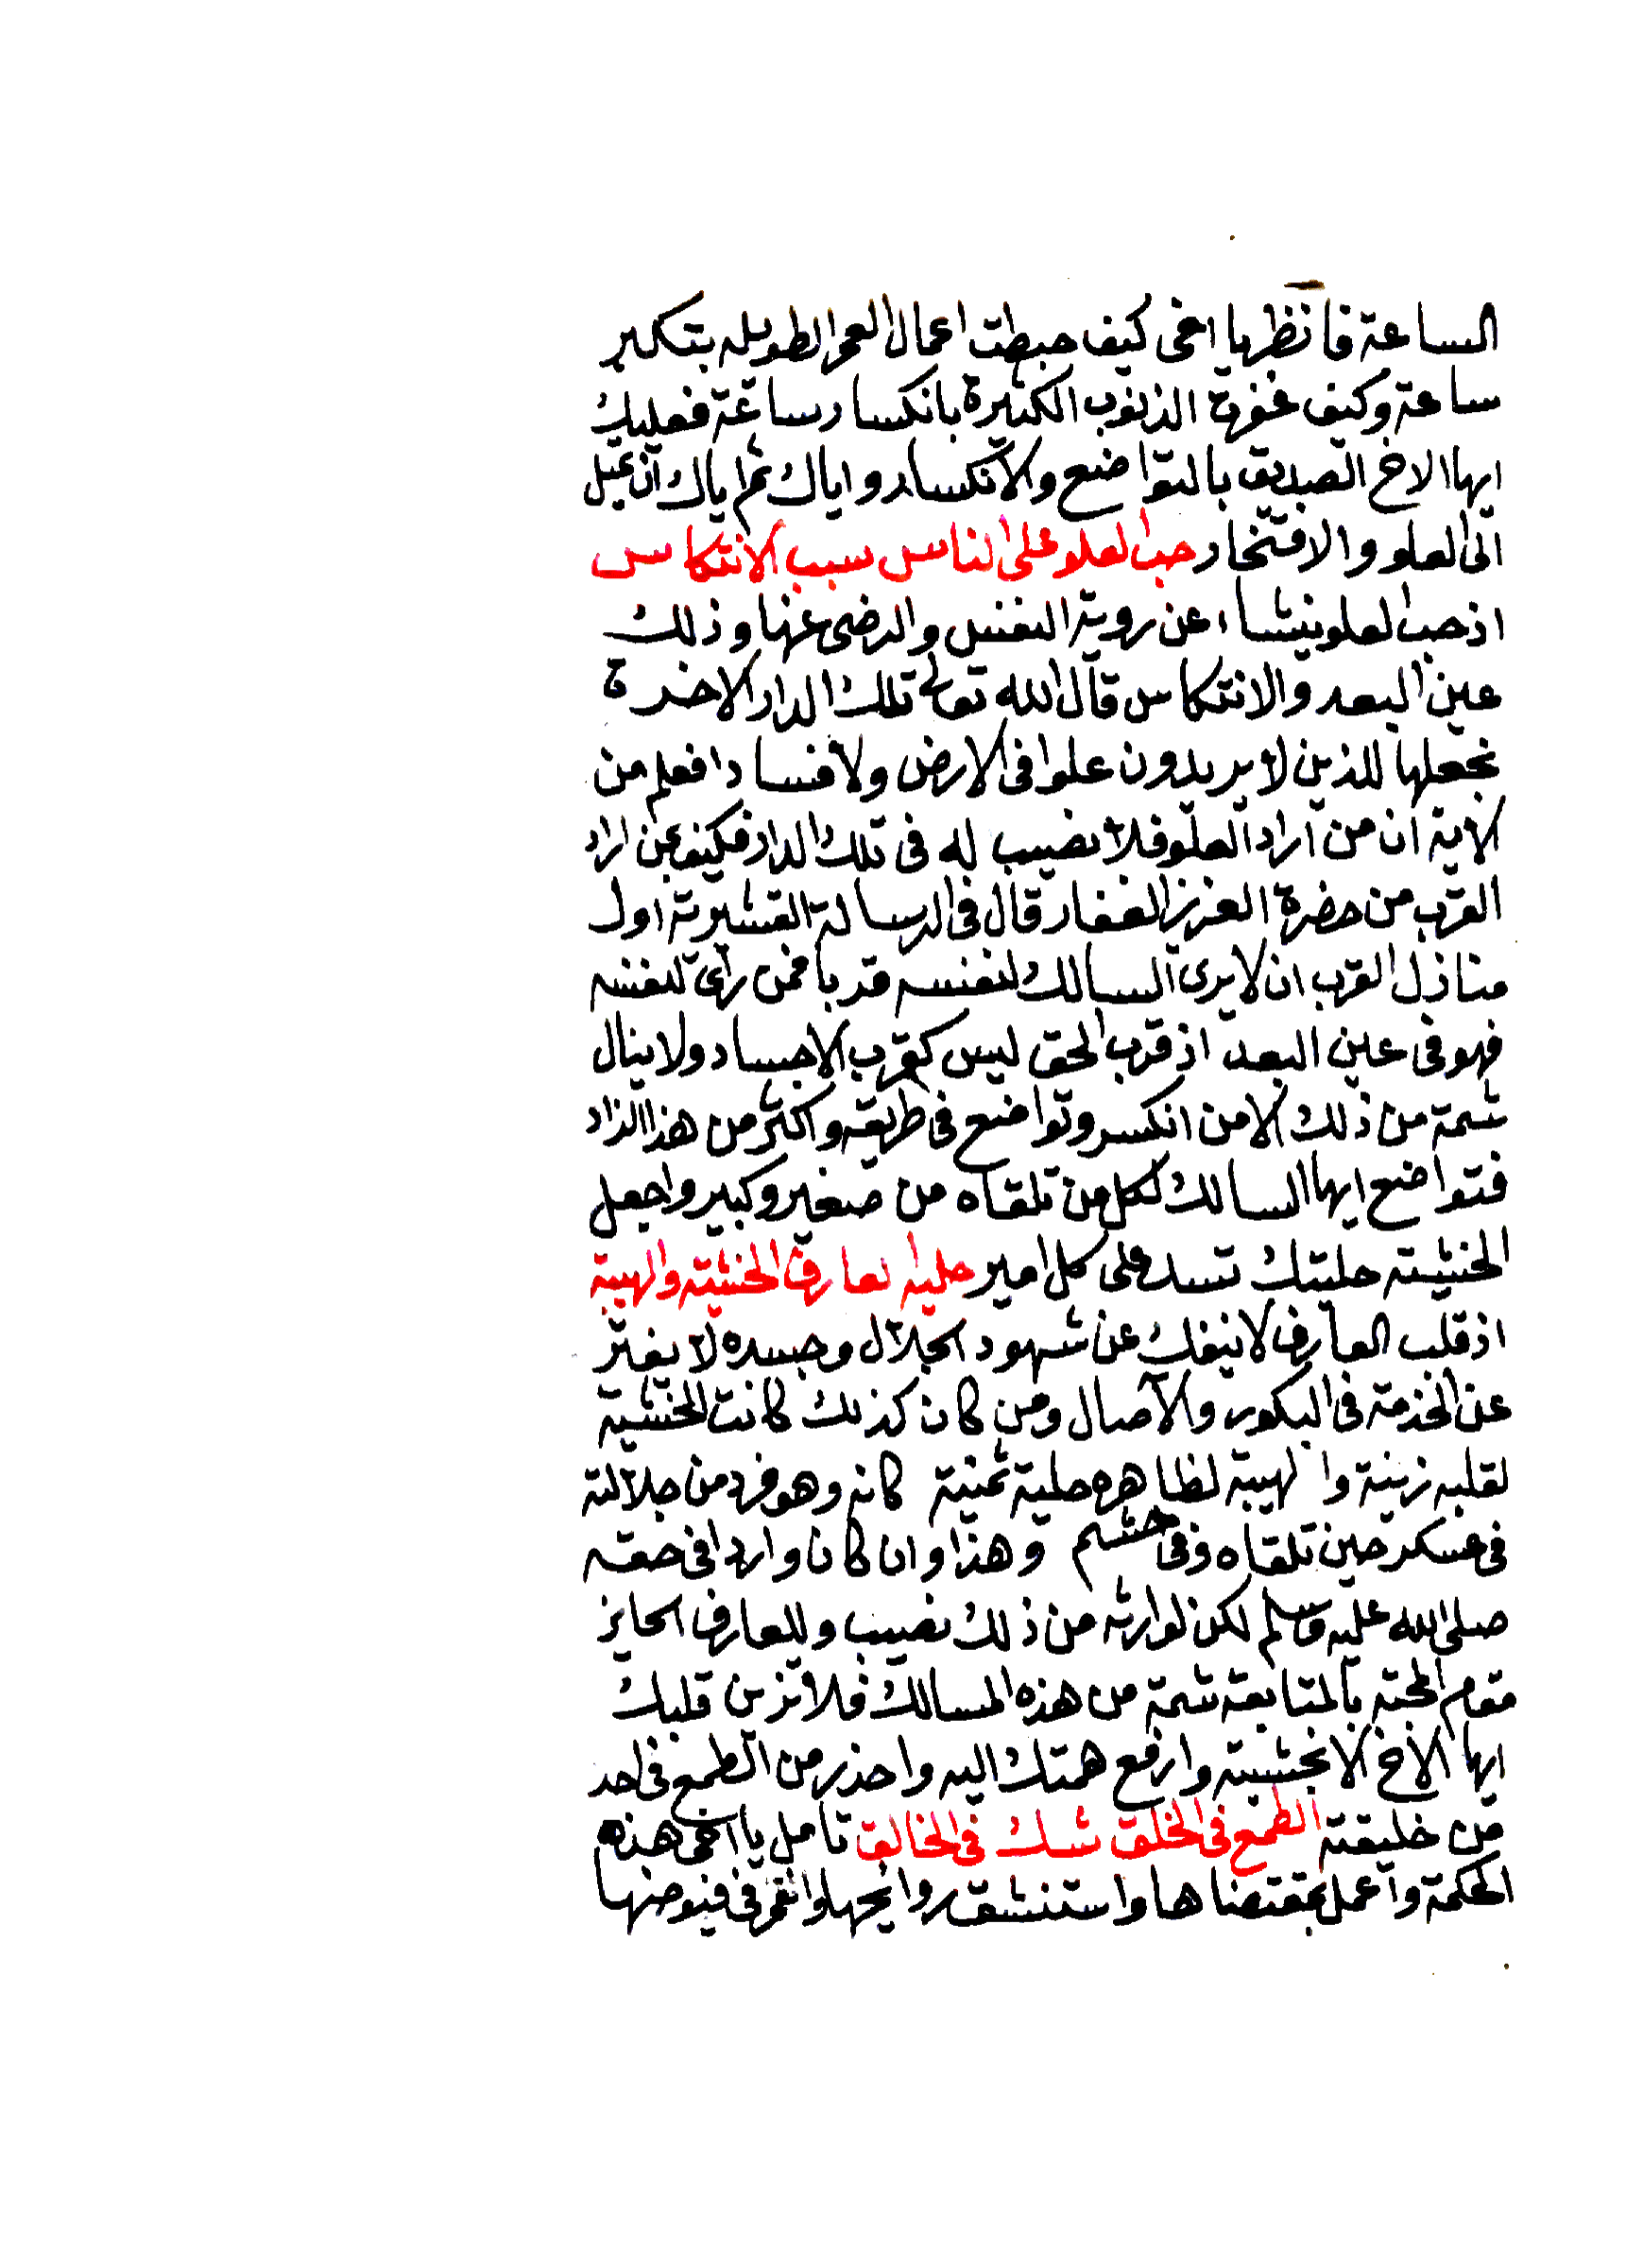 الساعة فانظر يا اخى كيف حبطت اعمال العمر الطويله بتكبر
ساعة وكيف غفرت الذنوب الكثيرة بانكسار ساعة فعليك
ايها الاخ الصديق بالتواضع والانكسار واياك ثم اياك ان تميل
الى العلو والافتخار حب العلو على الناس سبب الانتكاس
اذ حب العلو ينشاء عن روية النفس والرضى عنها وذلك
عين البعد والانتكاس قال الله تعالى تلك الدار الاخرة
نجعلها للذين لا يريدون علوا فى الارض ولا فسادا فعلم من
الاية ان من اراد العلو فلا نصيب له فى تلك الدار فكيف بمن اراد
القرب من حضرة العزيز الغفار قال فى الرسالة القشيرية اول
منازل القرب ان لا يرى السالك لنفسه قربا فمن راى لنفسه
فهو فى عين البعد اذ قرب الحق ليس كقرب الاجساد ولا ينال
شمة من ذلك الا من انكسر وتواضع فى طريقه واكثر من هذا الزاد
فتواضع ايها السالك لكل من تلقاه من صغير وكبير واجعل
الخشية حليتك تسد على كل امير حلية العارف الخشية والهيبة
اذ قلب العارف لا ينفك عن شهود الجلال وجسده لا يفتر
عن الخدمة فى البكور والآصال ومن كان كذلك كانت الخشية
لقلبه زينة والهيبة لظاهره حلية ثمينة كانه وهو فرد من جلالته
فى عسكر حين تلقاه وفى حشم وهذا وان كان واردا فى حقه
صلى الله عليه وسلم لكن لوارثه من ذلك نصيب وللعارف الحايز
مقام المحبة بالمتابعة شمة من هذه المسالك فلا تزين قلبك
ايها الاخ الا بخشيته وارفع همتك اليه واحذر من الطمع فى احد
من خليقته الطمع فى الخلق شك فى الخالق تامل يا اخى هذه
الحكمة واعمل بمقتضاها واستنشق روايحها وانغمر فى فيوضها